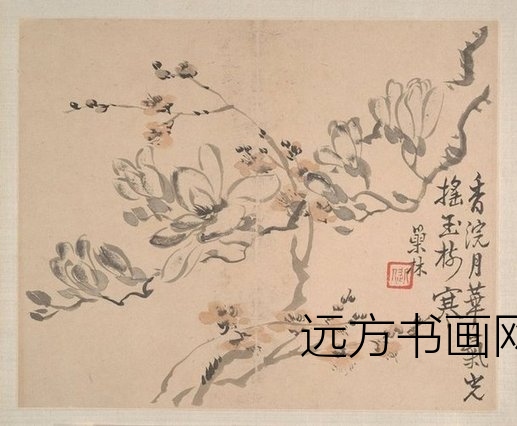 香浣月華氣光
搖玉樹寒
巢林
远方书画网